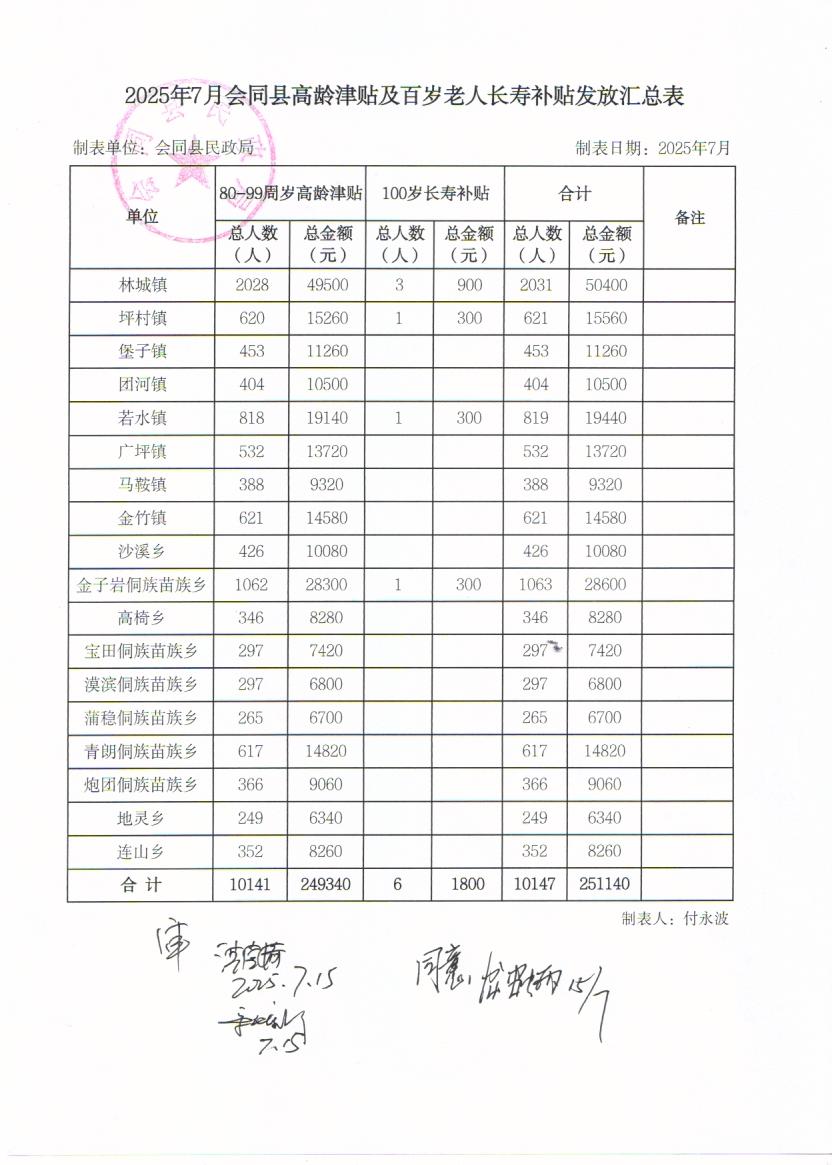 2025年7月会同县高龄津贴及百岁老人长寿补贴发放汇总表
制表单位：会同县民政局 制表日期：2025年7月
单位 80-99周岁高龄津贴 100岁长寿补贴 合计 备注
总人数（人） 总金额（元） 总人数（人） 总金额（元） 总人数（人） 总金额（元）
林城镇 2028 49500 3 900 2031 50400
坪村镇 620 15260 1 300 621 15560
堡子镇 453 11260 453 11260
团河镇 404 10500 404 10500
若水镇 818 19140 1 300 819 19440
广坪镇 532 13720 532 13720
马鞍镇 388 9320 388 9320
金竹镇 621 14580 621 14580
沙溪乡 426 10080 426 10080
金子岩侗族苗族乡 1062 28300 1 300 1063 28600
高椅乡 346 8280 346 8280
宝田侗族苗族乡 297 7420 297 7420
漠滨侗族苗族乡 297 6800 297 6800
蒲稳侗族苗族乡 265 6700 265 6700
青朗侗族苗族乡 617 14820 617 14820
炮团侗族苗族乡 366 9060 366 9060
地灵乡 249 6340 249 6340
连山乡 352 8260 352 8260
合 计 10141 249340 6 1800 10147 251140
制表人：付永波
同意 15/7
2025.7.15
7.15